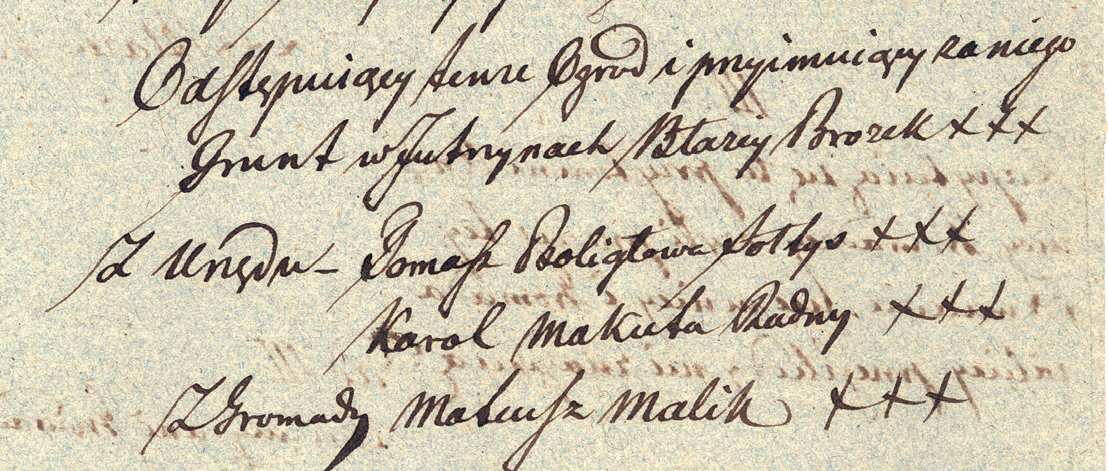 Odstępuiący tenże Ogrod i przyimuiący za niego
Grunt w Jutrzynach Błażey Brożek +++
Z Urzędu - Tomasz Boligłowa Sołtys +++
Karol Makuła Radny +++
Z Gromady Mateusz Malik +++